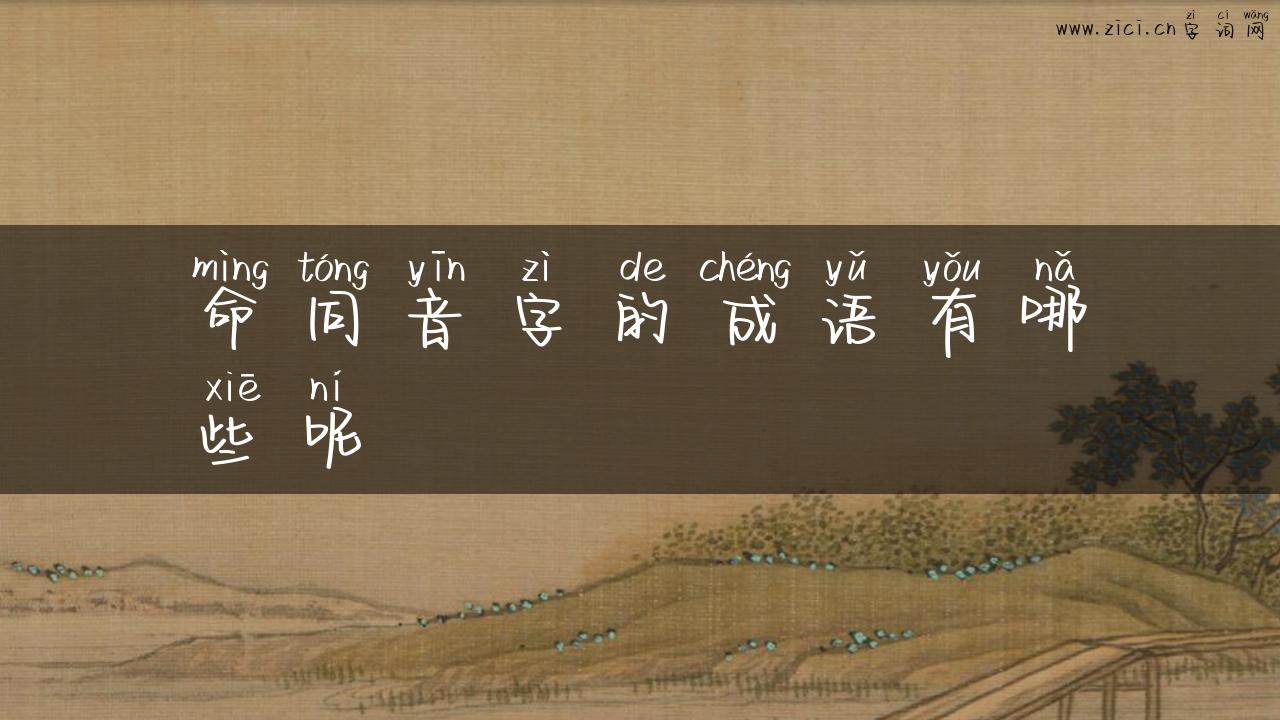 zì cí wǎng
www.zici.cn字词网
mìng tóng yīn zì de chéng yǔ yǒu nǎ
命同音字的成语有哪
xiē ní
些呢